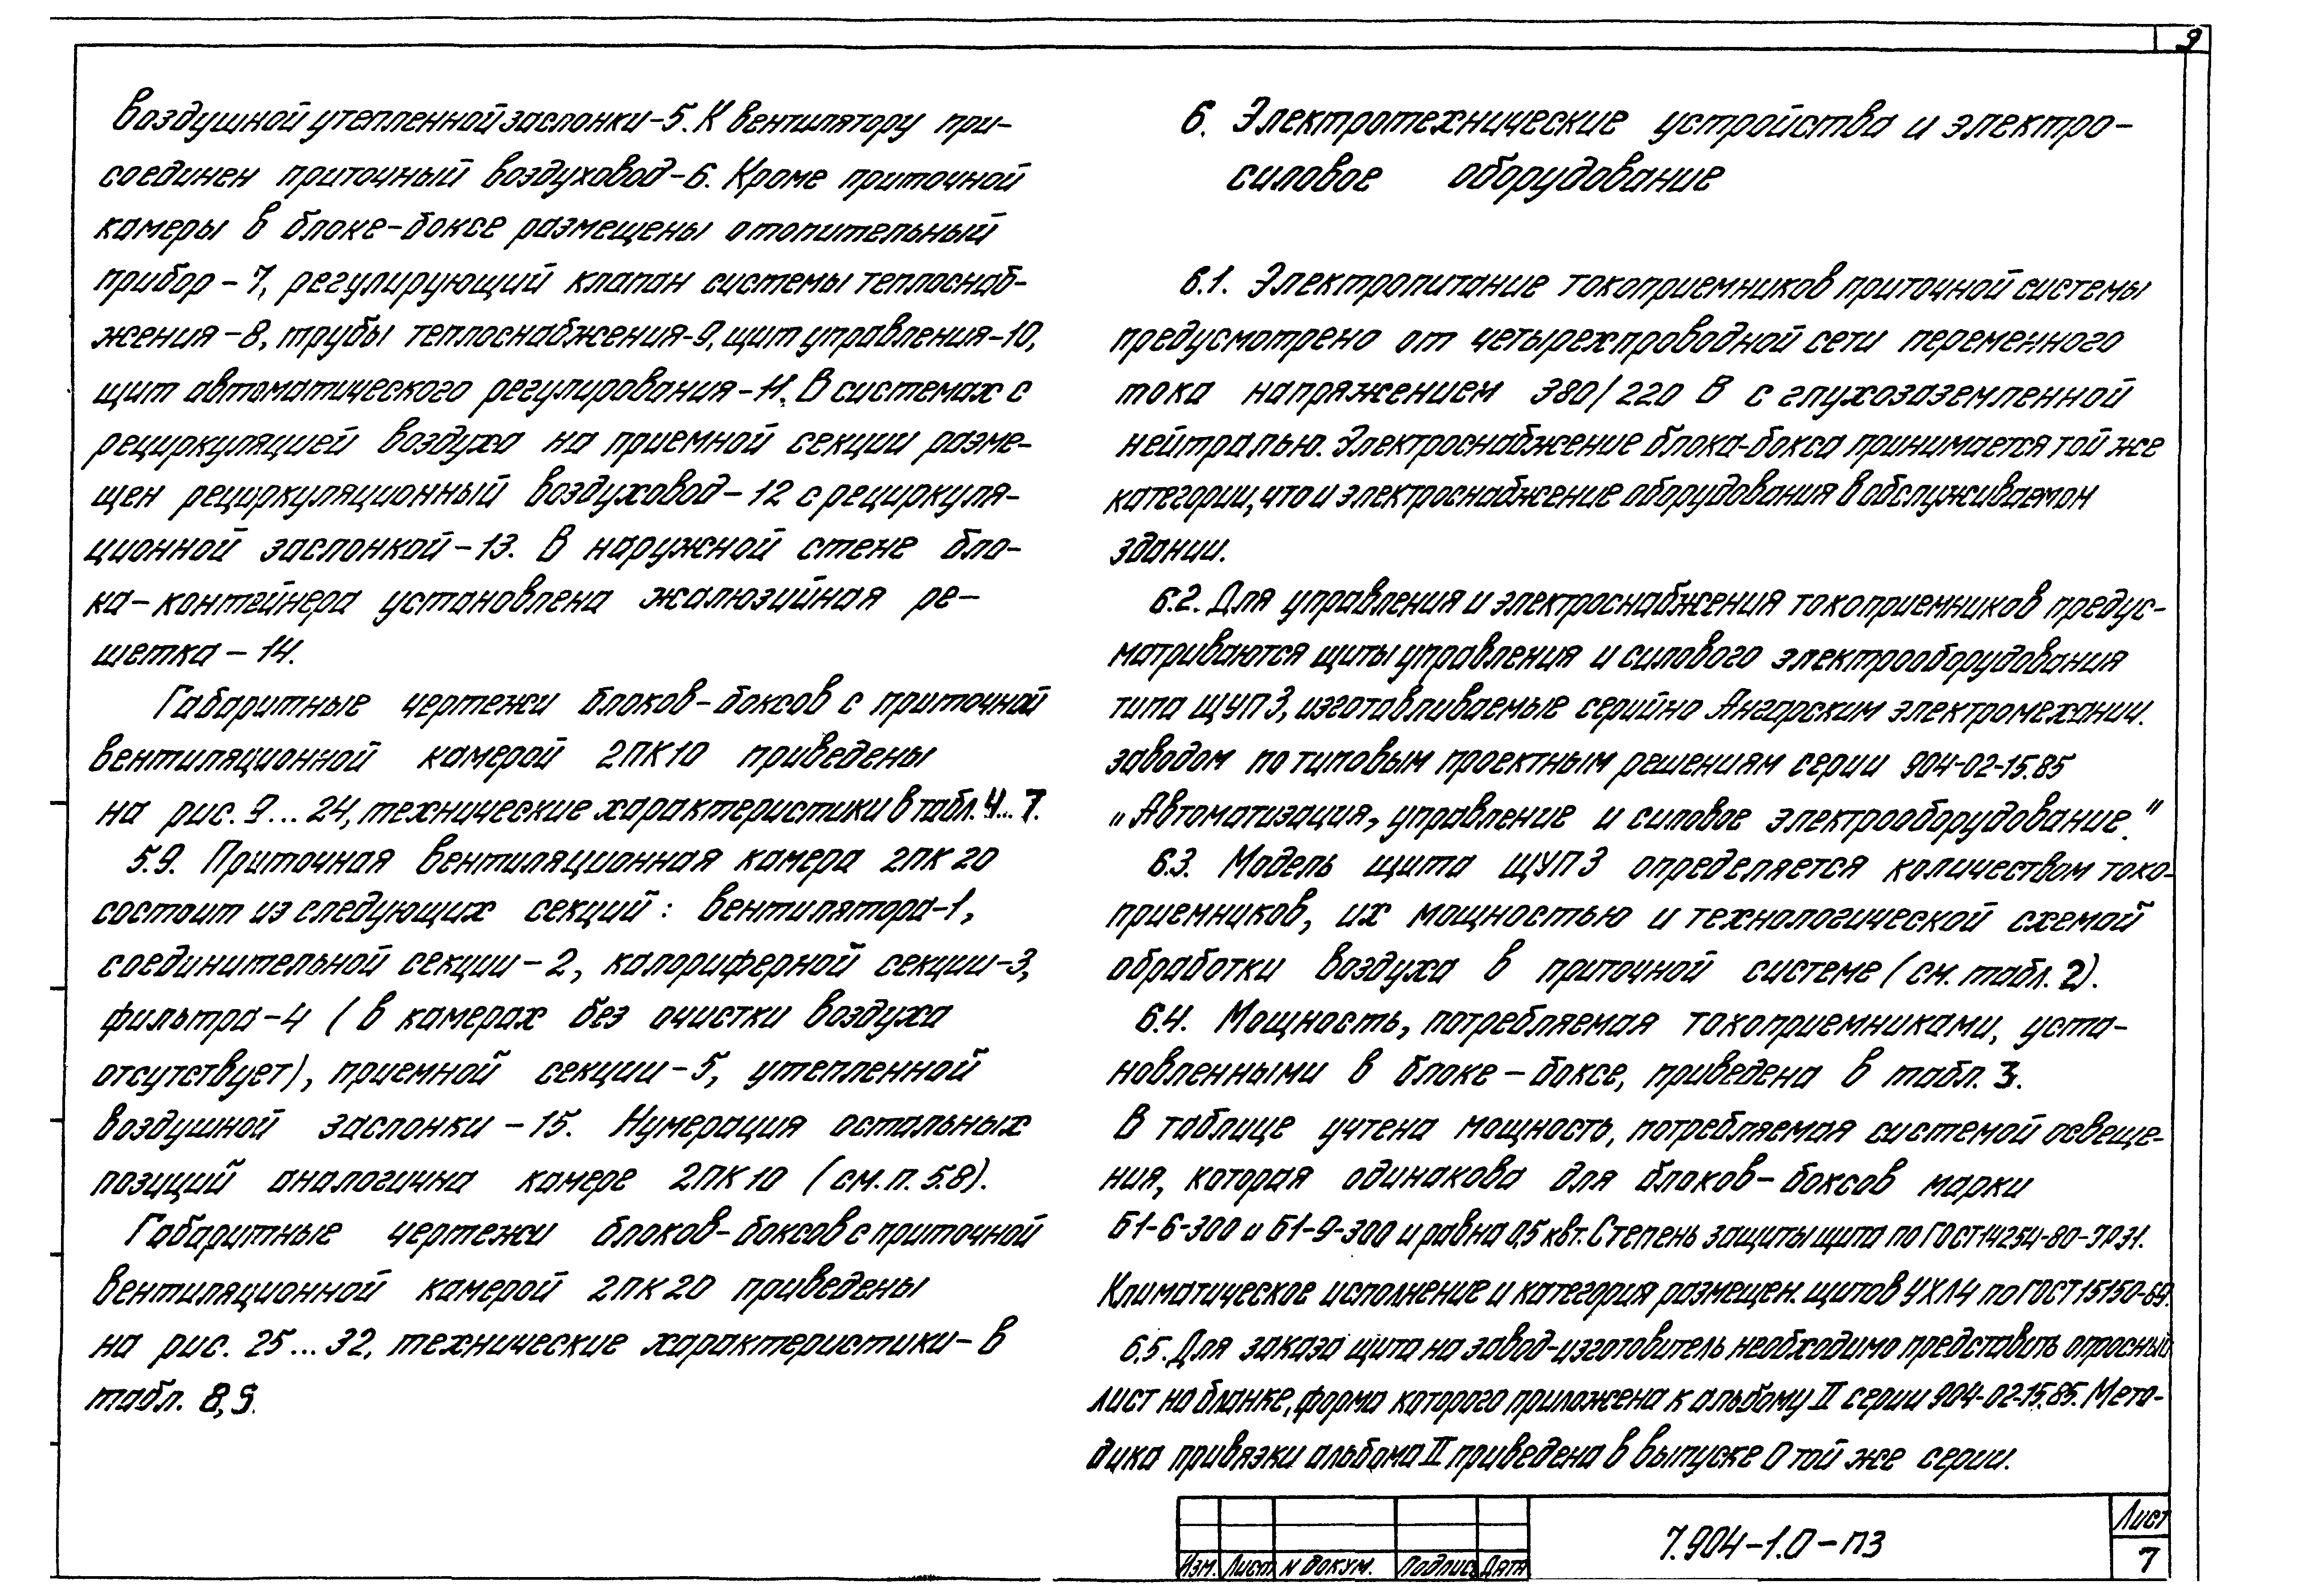 9
воздушной утепленной заслонки-5. К вентилятору при-
соединен приточный воздуховод-6. Кроме приточной
камеры в блоке-боксе размещены отопительный
прибор-7, регулирующий клапан системы теплоснаб-
жения-8, трубы теплоснабжения-9, щит управления-10,
щит автоматического регулирования-11. В системах с
рециркуляцией воздуха на приемной секции разме-
щен рециркуляционный воздуховод-12 с рециркуля-
ционной заслонкой-13. В наружной стене бло-
ка-контейнера установлена жалюзийная ре-
шетка-14.
Габаритные чертежи блоков-боксов с приточной
вентиляционной камерой 2ПК10 приведены
на рис. 9...24, технические характеристики в табл. 4...7.
5.9. Приточная вентиляционная камера 2ПК20
состоит из следующих секций: вентилятора-1,
соединительной секции-2, калориферной секции-3,
фильтра-4 (в камерах без очистки воздуха
отсутствует), приемной секции-5, утепленной
воздушной заслонки-15. Нумерация остальных
позиций аналогична камере 2ПК10 (см. п. 5.8).
Габаритные чертежи блоков-боксов с приточной
вентиляционной камерой 2ПК20 приведены
на рис. 25...32, технические характеристики-в
табл. 8,9.
6. Электротехнические устройства и электро-
силовое оборудование
6.1. Электропитание токоприемников приточной системы
предусмотрено от четырехпроводной сети переменного
тока напряжением 380/220 В с глухозаземленной
нейтралью. Электроснабжение блока-бокса принимается той же
категории, что и электроснабжение оборудования в обслуживаемом
здании.
6.2. Для управления и электроснабжения токоприемников предус-
матриваются щиты управления и силового электрооборудования
типа ЩУП3, изготавливаемые серийно Ангарским электромеханич.
заводом по типовым проектным решениям серии 904-02-15.85
„Автоматизация, управление и силовое электрооборудование".
6.3. Модель щита ЩУП3 определяется количеством токо-
приемников, их мощностью и технологической схемой
обработки воздуха в приточной системе (см. табл. 2).
6.4. Мощность, потребляемая токоприемниками, уста-
новленными в блоке-боксе, приведена в табл. 3.
В таблице учтена мощность, потребляемая системой освеще-
ния, которая одинакова для блоков-боксов марки
Б1-6-300 и Б1-9-300 и равна 0,5 квт. Степень защиты щита по ГОСТ 14254-80-JP31.
Климатическое исполнение и категория размещен. щитов УХЛ4 по ГОСТ 15150-69.
6.5. Для заказа щита на завод-изготовитель необходимо представить опросный
лист на бланке, форма которого приложена к альбому II серии 904-02-15.85. Мето-
дика привязки альбома II приведена в выпуске 0 той же серии.
Изм. Лист N докум. Подпись Дата
7.904-1.0-ПЗ
Лист
7